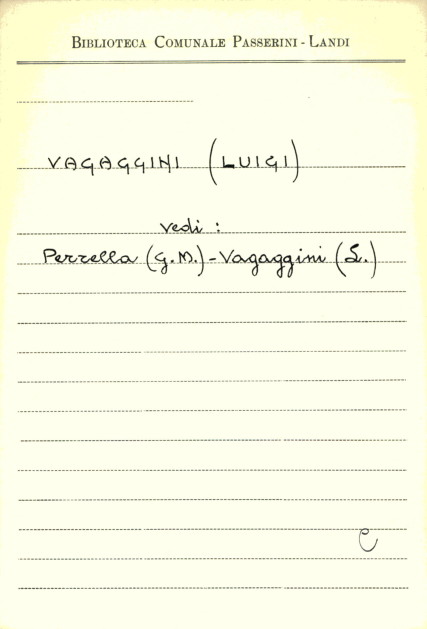 BIBLIOTECA COMUNALE PASSERINI - LANDI
VAGAGGINI (LUIGI)
vedi :
Perrella (G.M.) - Vagaggini (L.)
C